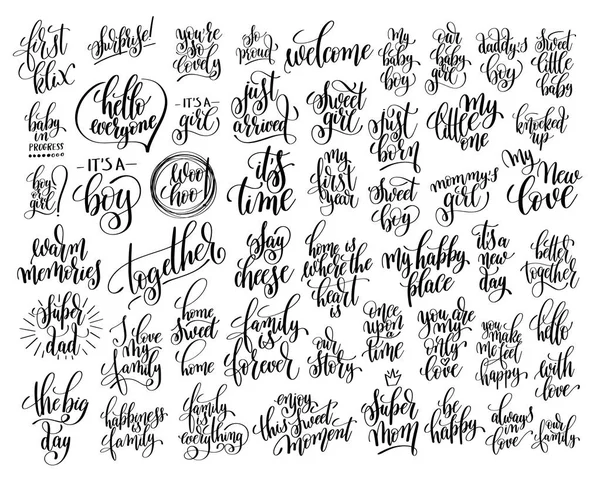 first
klix
surprise!
you're
so
lovely
so
proud
welcome
My
baby
boy
our
baby
girl
daddy's
boy
sweet
little
baby
baby
in
PROGRESS
hello
everyone
IT'S A
girl
just
arrived
sweet
girl
just
born
my
little
one
knocked
up
boy
or
girl?
IT'S A
boy
woo
hoo!
it's
time
my
first
year
sweet
boy
mommy's
girl
My New
love
warm
memories
together
say
cheese
home is
where the
heart
is
my happy
place
it's a
new
day
better
together
super
dad
I love
my
family
home
sweet
home
family
is
forever
our
story
once
upon a
time
you are
my
only
love
you
make
me feel
happy
hello
with
love
the big
day
happiness
is
family
family
is
everything
enjoy
this sweet
moment
super
mom
be
happy
always
in
love
our
family